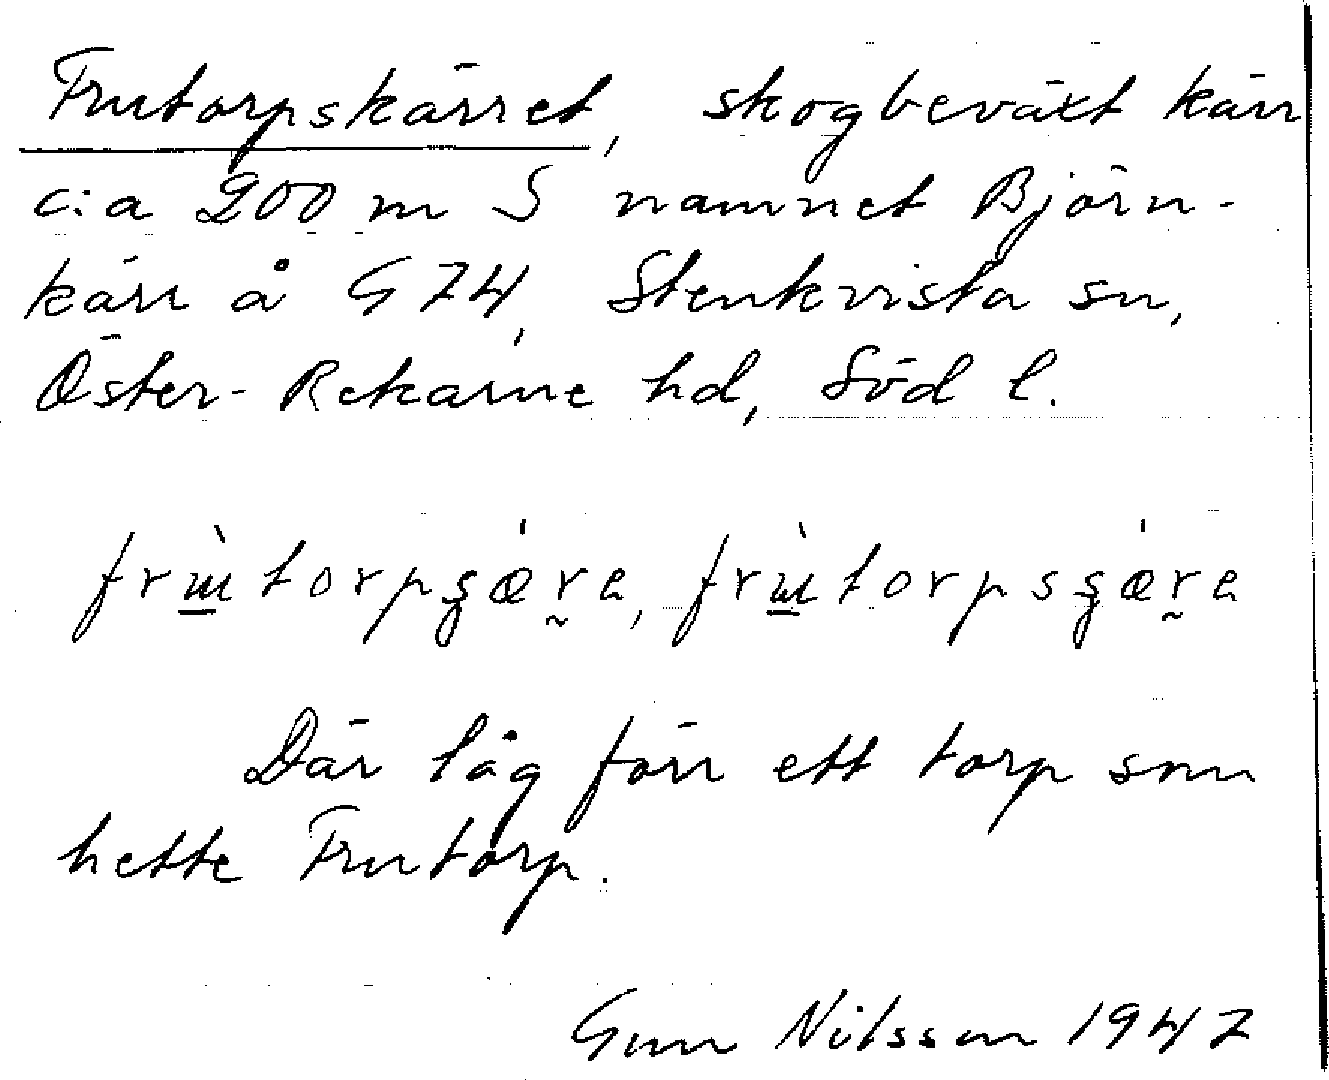 Frutorpskärret, skogbeväxt kärr
c:a 200 m S namnet Björn-
kärr å G 74, Stenkvista sn,
Öster-Rekarne hd, Söd l.
Där låg förr ett torp som
hette Frutorp.
Gun Nilsson 1947